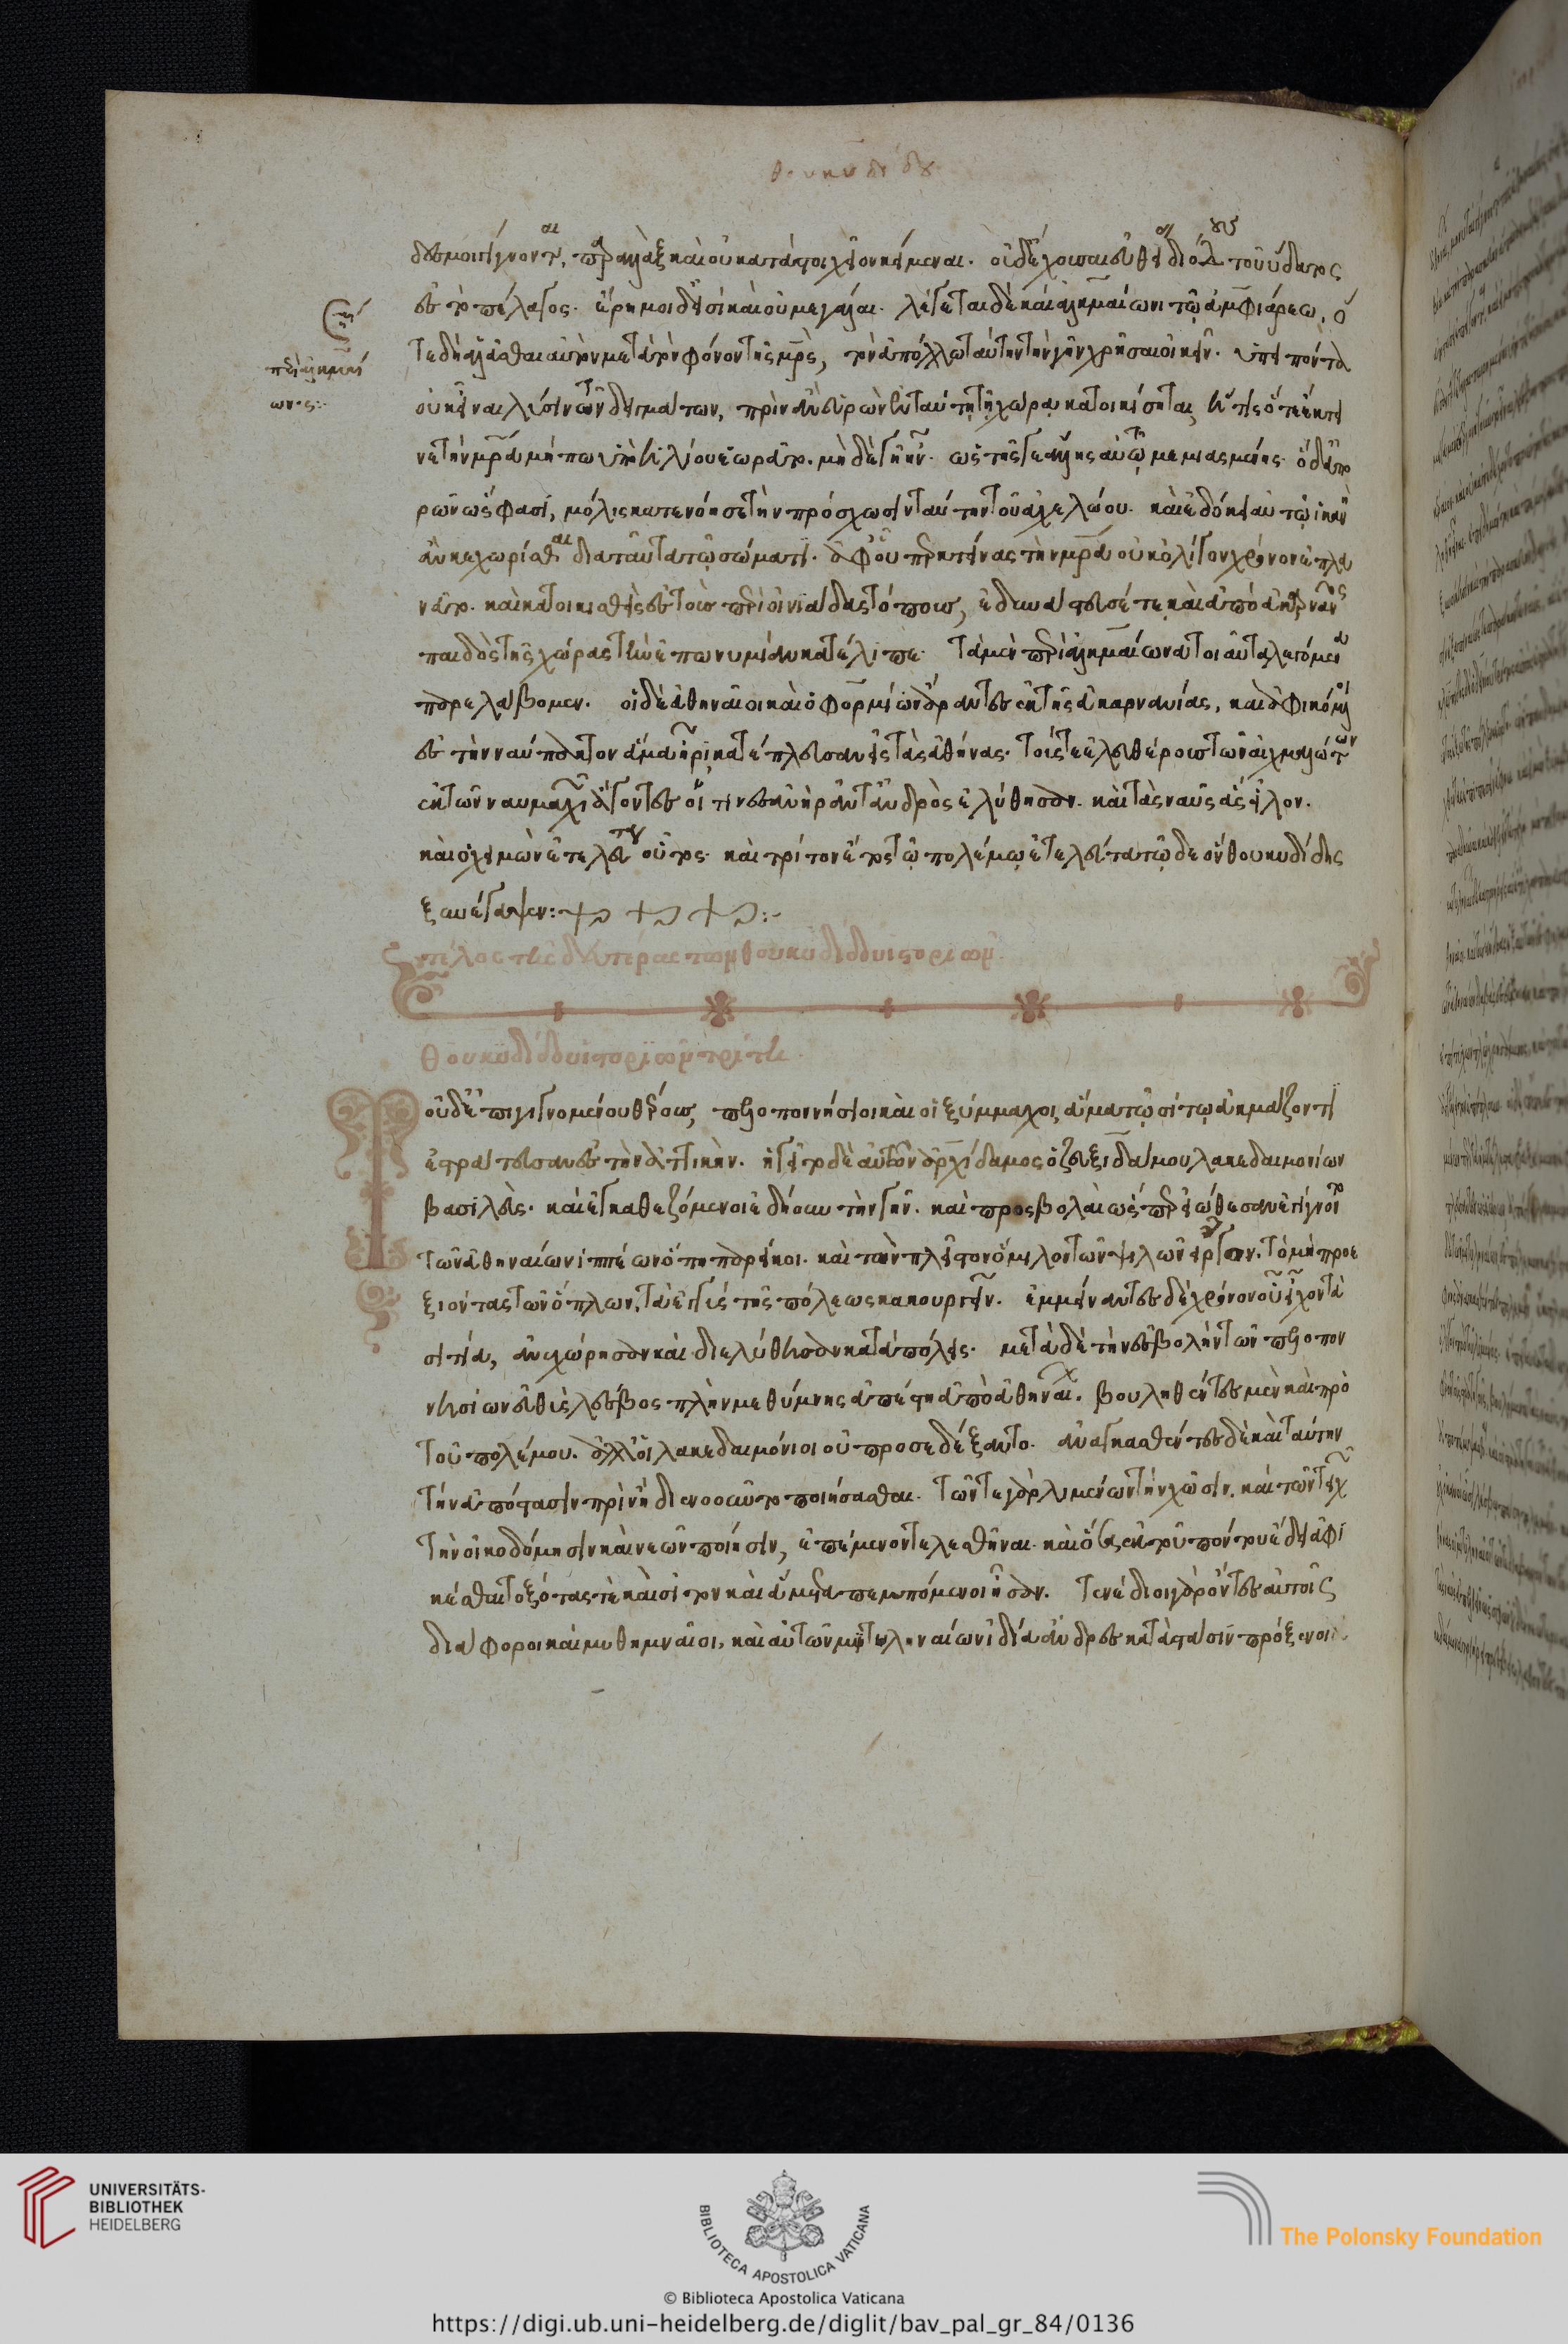 θουκυδίδου
δεσμοι γίγνονται, παραλλὰξ καὶ οὐ κατὰ στοῖχον κείμεναι. οὐδ' ἔχουσαι εὐθείας διόδους τοῦ ὕδατος
ἐς τὸ πέλαγος. ἐρῆμοι δ' εἰσὶ καὶ οὐ μεγάλαι. λέγεται δὲ καὶ ἀλκμαίωνι τῷ ἀμφιάρεω, ὅ
τε δὴ ἀλᾶσθαι αὐτὸν μετὰ τὸν φόνον τῆς μητρὸς, τὸν ἀπόλλω ταύτην τὴν γῆν χρῆσαι οἰκεῖν. ὑπειπόντα
περὶ ἀλκμαί
ωνος:
οὐκ εἶναι λύσιν τῶν δειμάτων, πρὶν ἂν εὑρὼν ἐν ταύτῃ τῇ χώρᾳ κατοικίσηται, ἥτις ὅτε ἔκτει
νε τὴν μητέρα μήπω ὑπὸ ἡλίου ἑωρᾶτο. μηδὲ γῆ ἦν. ὡς τῆς γε ἄλλης αὐτῷ μεμιασμένης. ὁ δ' ἀπο
ρῶν ὥς φασι, μόλις κατενόησε τὴν πρόσχωσιν ταύτην τοῦ ἀχελώου. καὶ ἐδόκει αὐτῷ ἱκανὴ
ἂν κεχωρίσθαι δίαιτα τῷ σώματι. ἀφ' οὗ περ κτείνας τὴν μητέρα οὐκ ὀλίγον χρόνον ἐπλα
νᾶτο. καὶ κατοικισθεὶς ἐς τοὺς περὶ οἰνιάδας τόπους, ἐδυνάστευσέ τε καὶ ἀπὸ ἀκαρνᾶνος
παιδὸς τῆς χώρας τὴν ἐπωνυμίαν κατέλιπε. τὰ μὲν περὶ ἀλκμαίωνα τοιαῦτα λεγόμενα
παρελάβομεν. οἱ δὲ ἀθηναῖοι καὶ ὁ φορμίων ἄραντες ἐκ τῆς ἀκαρνανίας, καὶ ἀφικόμενοι
ἐς τὴν ναύπακτον ἅμα ἦρι κατέπλευσαν εἰς τὰς ἀθήνας. τούς τε ἐλευθέρους τῶν αἰχμαλώτων
ἐκ τῶν ναυμαχιῶν ἄγοντες οἵτινες ἀνὴρ ἀντ' ἀνδρὸς ἐλύθησαν. καὶ τὰς ναῦς ἃς εἷλον.
καὶ ὁ χειμὼν ἐτελεύτα οὗτος. καὶ τρίτον ἔτος τῷ πολέμῳ ἐτελεύτα τῷδε ὃν θουκυδίδης
ξυνέγραψεν:
τέλος τῆς δευτέρας τῶν θουκυδίδου ἱστοριῶν.
θουκυδίδου ἱστοριῶν τρίτη.
Τοῦ δ' ἐπιγιγνομένου θέρους, πελοποννήσιοι καὶ οἱ ξύμμαχοι, ἅμα τῷ σίτῳ ἀκμάζοντι
ἐστράτευσαν ἐς τὴν ἀττικήν. ἡγεῖτο δὲ αὐτῶν ἀρχίδαμος ὁ ζευξιδάμου λακεδαιμονίων
βασιλεὺς. καὶ ἐγκαθεζόμενοι ἐδῄουν τὴν γῆν. καὶ προσβολαὶ ὥσπερ εἰώθεσαν ἐγίγνοντο
τῶν ἀθηναίων ἱππέων ὅπῃ παρείκοι. καὶ τὸν πλεῖστον ὅμιλον τῶν ψιλῶν εἶργον. τὸ μὴ προε
ξιόντας τῶν ὅπλων, τὰ ἐγγὺς τῆς πόλεως κακουργεῖν. ἐμμείναντες δὲ χρόνον οὗ εἶχον τὰ
σιτία, ἀνεχώρησαν καὶ διελύθησαν κατὰ πόλεις. μετὰ δὲ τὴν ἐσβολὴν τῶν πελοπον
νησίων εὐθὺς λέσβος πλὴν μεθύμνης ἀπέστη ἀπὸ ἀθηναίων. βουληθέντες μὲν καὶ πρὸ
τοῦ πολέμου. ἀλλ' οἱ λακεδαιμόνιοι οὐ προσεδέξαντο. ἀναγκασθέντες δὲ καὶ ταύτην
τὴν ἀπόστασιν πρὶν ἢ διενοοῦντο ποιήσασθαι. τῶν τε γὰρ λιμένων τὴν χῶσιν. καὶ τῶν τειχῶν
τὴν οἰκοδόμησιν καὶ νεῶν ποίησιν, ἐπέμενον τελεσθῆναι. καὶ ὅσα ἐκ τοῦ πόντου ἔδει ἀφι
κέσθαι τοξότας τὲ καὶ σῖτον καὶ ἃ μεταπεμπόμενοι ἦσαν. τενέδιοι γὰρ ὄντες αὐτοῖς
διάφοροι καὶ μυθημναῖοι, καὶ αὐτῶν μυτιληναίων ἰδίᾳ ἄνδρες κατὰ στάσιν πρόξενοι
UNIVERSITÄTS-
BIBLIOTHEK
HEIDELBERG
BIBLIOTECA APOSTOLICA VATICANA
The Polonsky Foundation
© Biblioteca Apostolica Vaticana
https://digi.ub.uni-heidelberg.de/diglit/bav_pal_gr_84/0136